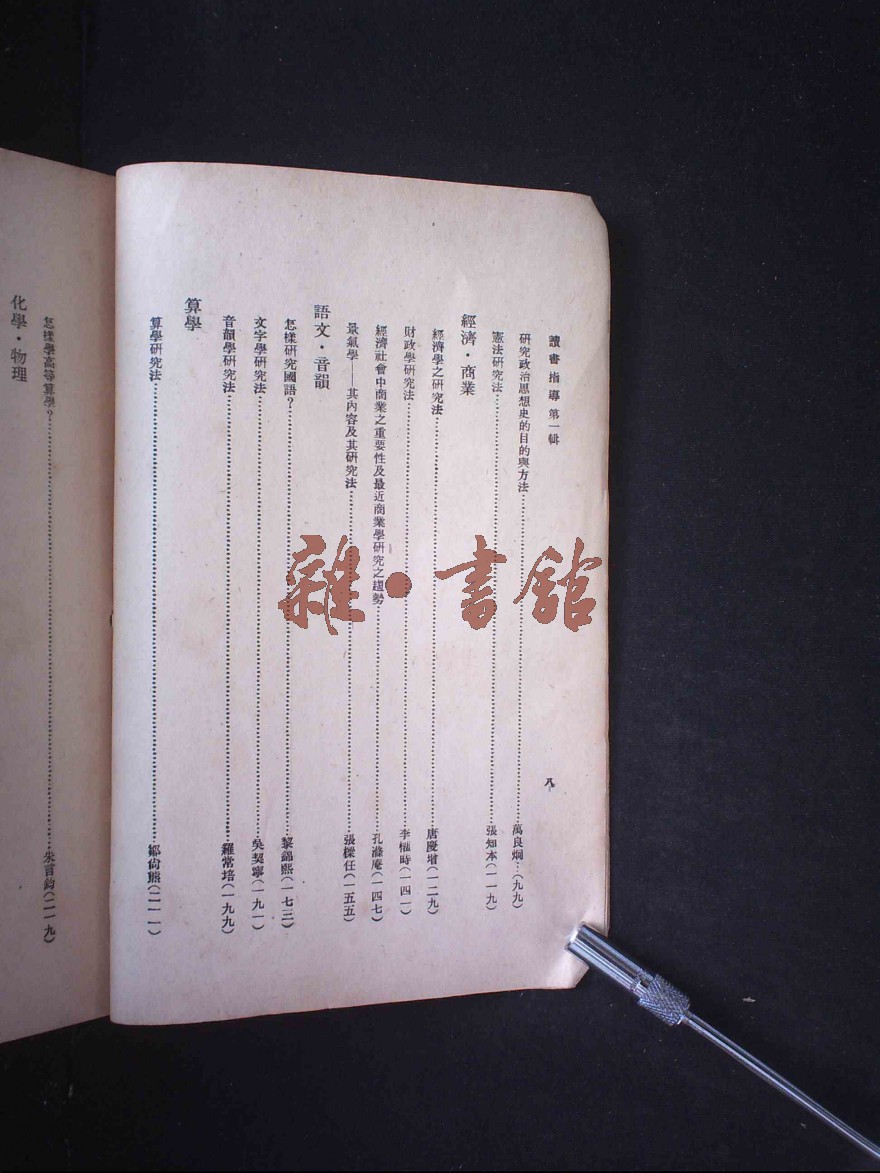 讀書指導 第一輯
八
研究政治思想史的目的與方法……萬良炯…(九九)
憲法研究法……張知本(一一九)
經濟・商業
經濟學之研究法……唐慶增(一二九)
財政學研究法……李權時(一四一)
經濟社會中商業之重要性及最近商業學研究之趨勢……孔滌庵(一四七)
景氣學——其內容及其研究法……張樑任(一五五)
語文・音韻
怎樣研究國語？……黎錦熙(一七三)
文字學研究法……吳契寧(一九一)
音韻學研究法……羅常培(一九九)
算學
算學研究法……鄒尙熊(二一一)
怎樣學高等算學？……朱言鈞(二一九)
化學・物理
雜・書館